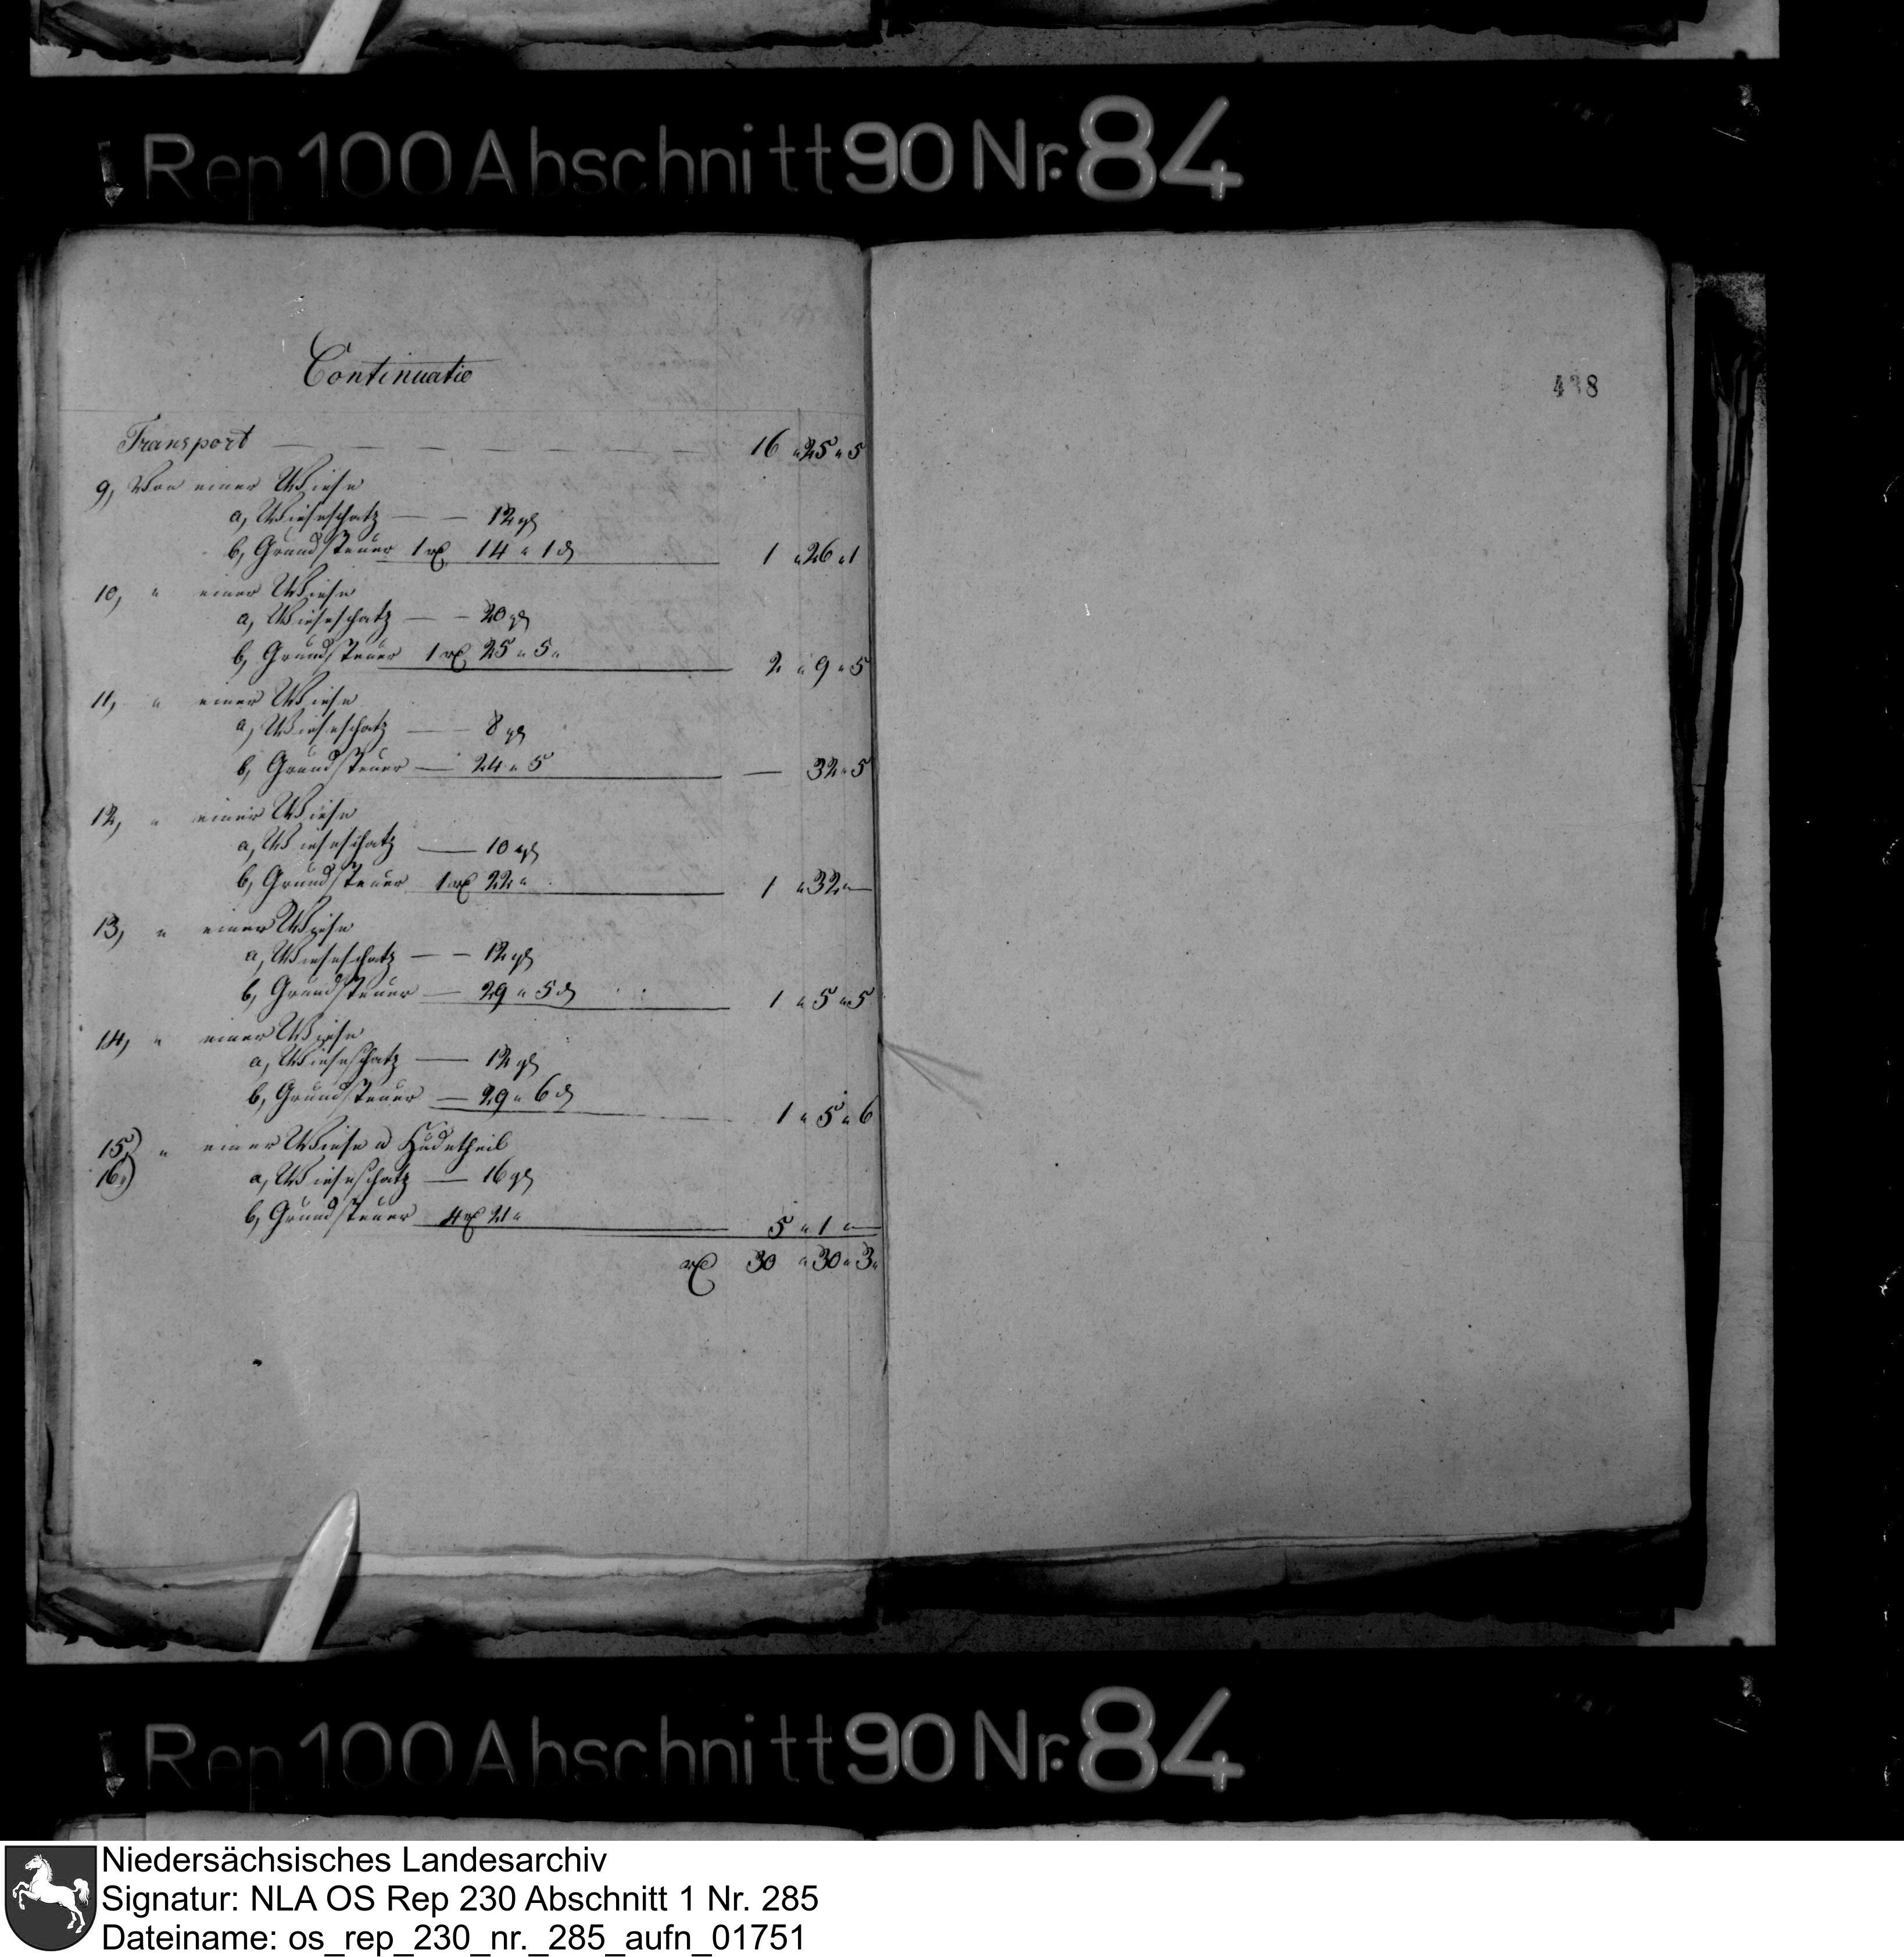 Rep 100 Abschnitt 90 Nr. 84
Continuatio
438
Transport — — — — — — 16 " 25 " 5
9, Von einer Wiese
a, Wieseschatz — — 12 gl
b, Grundsteuer 1 rℓ 14 " 1 d 1 " 26 " 1
10, " einer Wiese
a, Wieseschatz — — 20 gl
b, Grundsteuer 1 rℓ 25 " 5 " 2 " 9 " 5
11, " einer Wiese
a, Wieseschatz — — 8 gl
b, Grundsteuer — 24 " 5 — 32 " 5
12, " einer Wiese
a, Wieseschatz — 10 gl
b, Grundsteuer 1 rℓ 22 " 1 " 32 " —
13, " einer Wiese
a, Wieseschatz — — 12 gl
b, Grundsteuer — 29 " 5 d 1 " 5 " 5
14, " einer Wiese
a, Wieseschatz — 12 gl
b, Grundsteuer — 29 " 6 d 1 " 5 " 6
15,) " einer Wiese u Hudetheil
16,) a, Wieseschatz — 16 gl
b, Grundsteuer 4 rℓ 21 " 5 " 1 " —
rℓ 30 " 30 " 3 "
Rep 100 Abschnitt 90 Nr. 84
Niedersächsisches Landesarchiv
Signatur: NLA OS Rep 230 Abschnitt 1 Nr. 285
Dateiname: os_rep_230_nr._285_aufn_01751